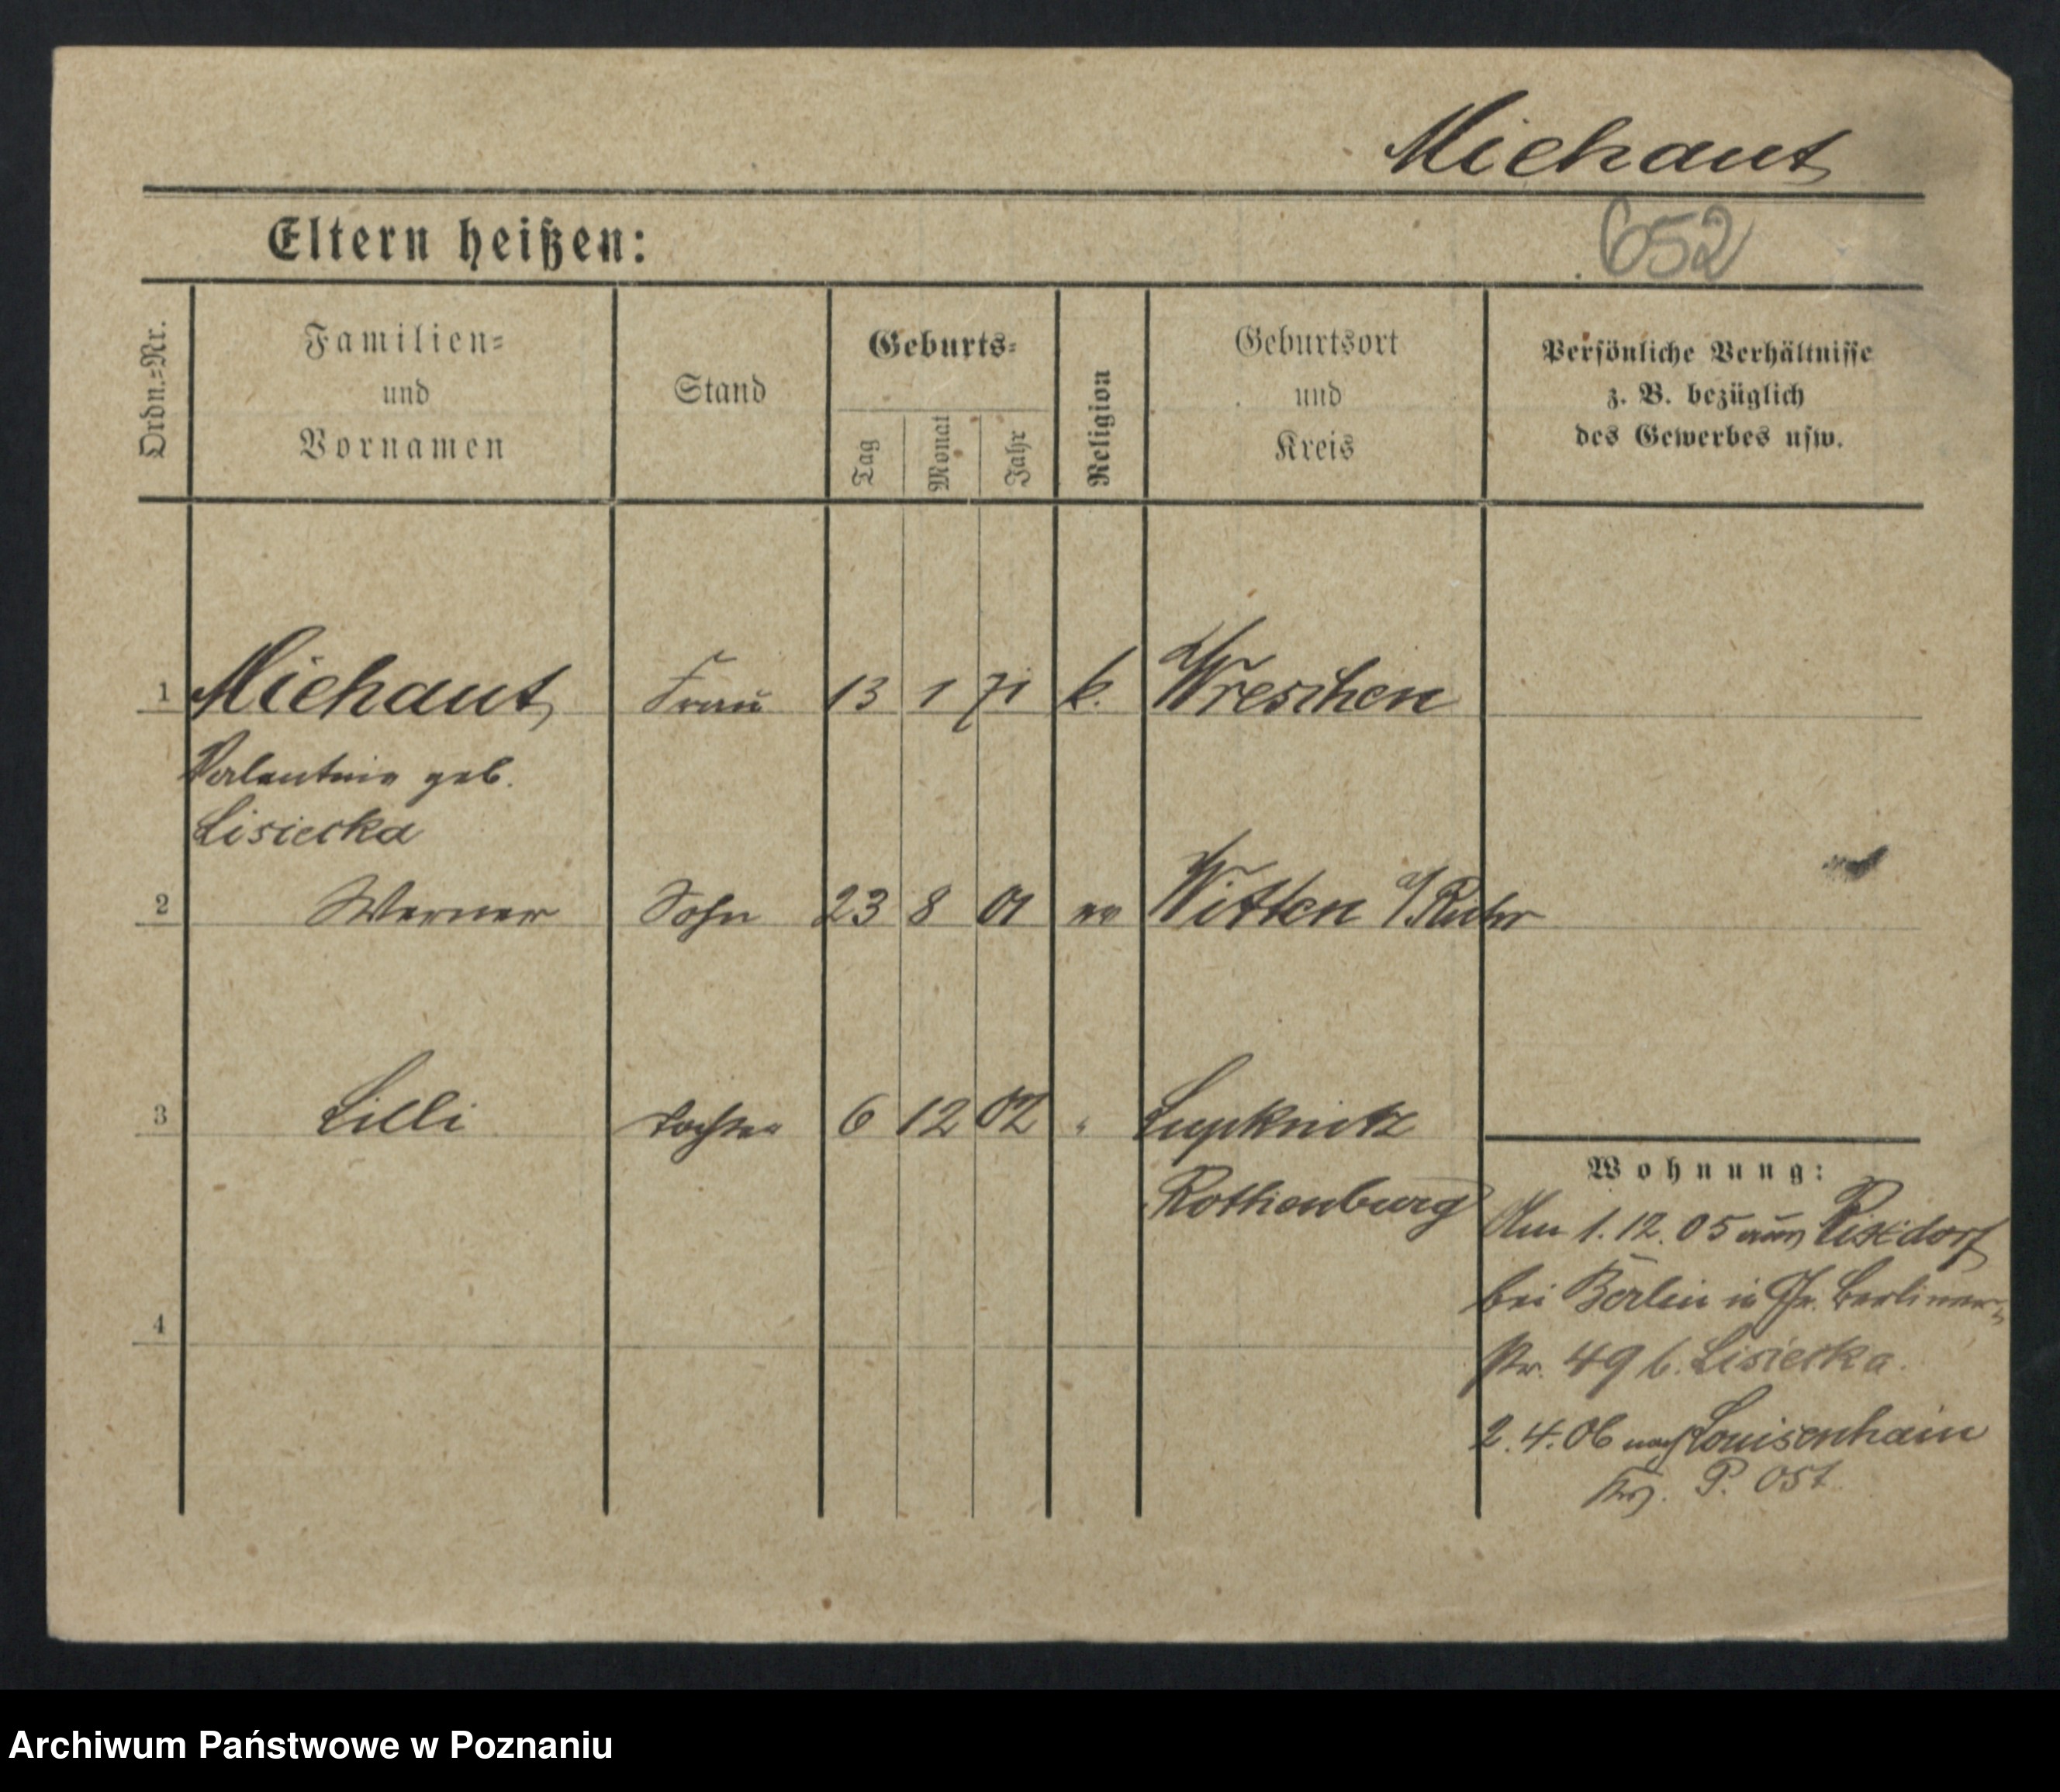 Michaut
652
Eltern heißen:
Ordn.=Nr.
Familien=
und
Vornamen
Stand
Geburts=
Tag
Monat
Jahr
Religion
Geburtsort
und
Kreis
Persönliche Verhältnisse
z. B. bezüglich
des Gewerbes usw.
1 Michaut Frau 13 1 71 k. Wreschen
Valentine geb.
Lisiecka
2 Werner Sohn 23 8 01 ev Witten a/Ruhr
3 Lilli Tochter 6 12 02 " Lupknitz
Rothenburg
Wohnung:
Am 1.12.05 aus Rixdorf
bei Berlin in Berliner-
str. 49 b. Lisiecka.
4
2.4.06 nach Louisenhain
Krs. P. Ost
Archiwum Państwowe w Poznaniu